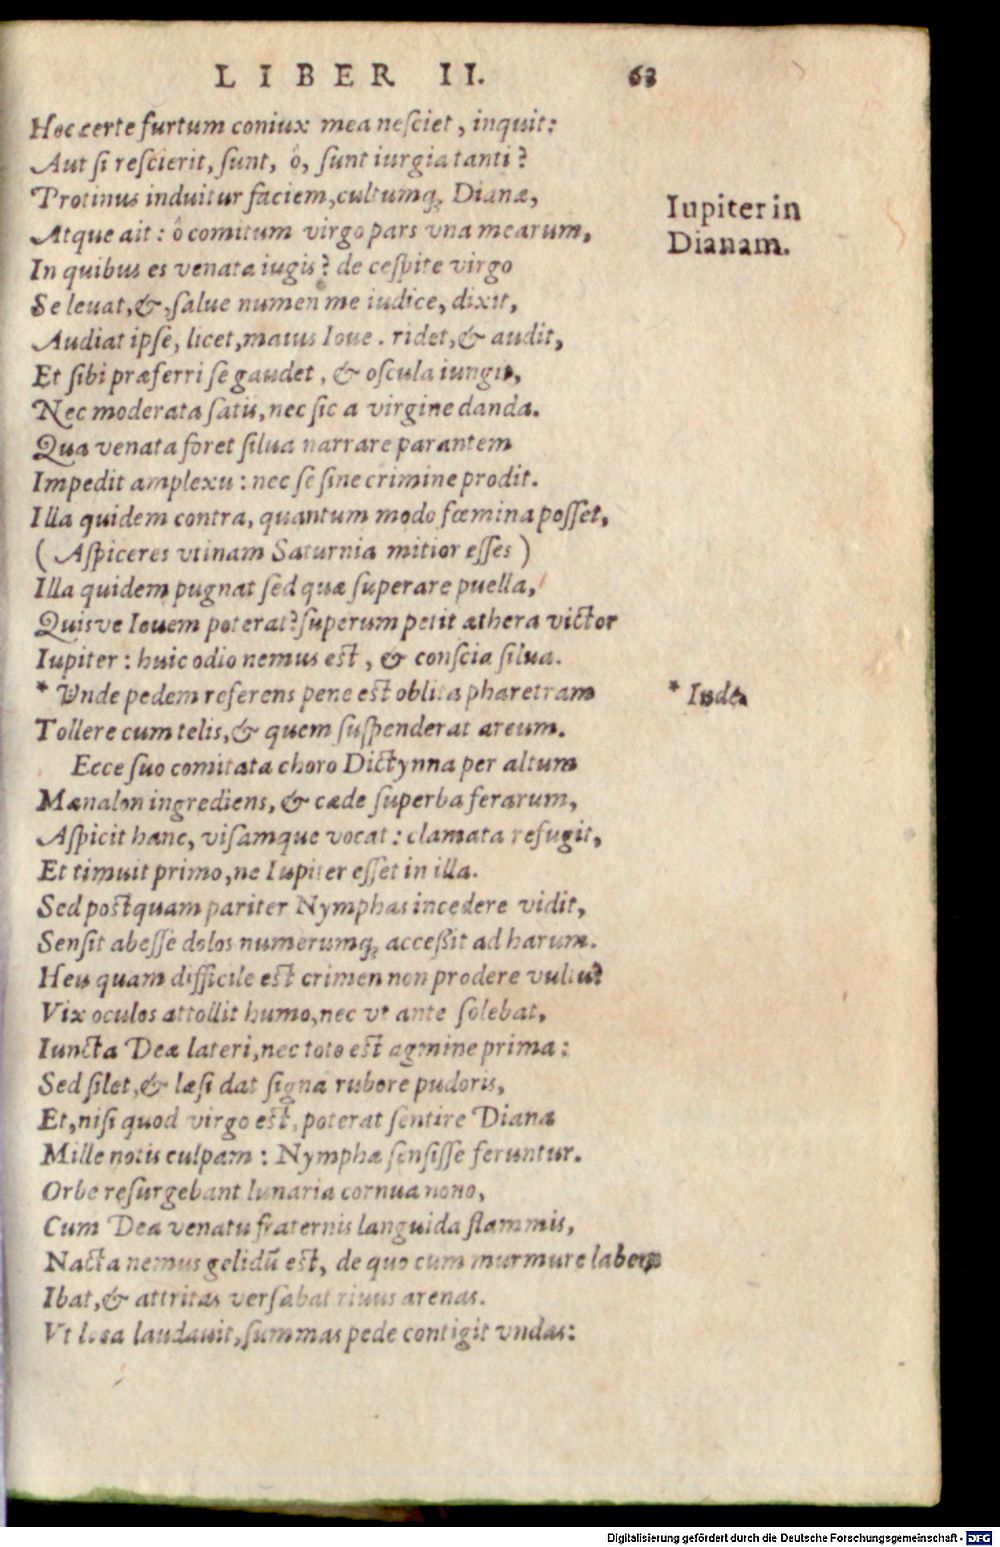 LIBER II. 63
Hoc certe furtum coniux mea nesciet, inquit:
Aut si rescierit, sunt, ô, sunt iurgia tanti?
Protinus induitur faciem, cultumq; Dianæ,
Iupiter in
Dianam.
Atque ait: ô comitum virgo pars vna mearum,
In quibus es venata iugis? de cespite virgo
Se leuat, &, salue numen me iudice, dixit,
Audiat ipse, licet, maius Ioue. ridet, & audit,
Et sibi præferri se gaudet, & oscula iungit,
Nec moderata satis, nec sic a virgine danda.
Qua venata foret silua narrare parantem
Impedit amplexu: nec se sine crimine prodit.
Illa quidem contra, quantum modo fœmina posset,
(Aspiceres vtinam Saturnia mitior esses)
Illa quidem pugnat sed quæ superare puella,
Quisve Iouem poterat? superum petit æthera victor
Iupiter: huic odio nemus est, & conscia silua.
* Vnde pedem referens pene est oblita pharetram
* Inde
Tollere cum telis, & quem suspenderat arcum.
Ecce suo comitata choro Dictynna per altum
Mænalon ingrediens, & cæde superba ferarum,
Aspicit hanc, visamque vocat: clamata refugit,
Et timuit primo, ne Iupiter esset in illa.
Sed postquam pariter Nymphas incedere vidit,
Sensit abesse dolos numerumq; accessit ad harum.
Heu quam difficile est crimen non prodere vultu?
Vix oculos attollit humo, nec vt ante solebat,
Iuncta Deæ lateri, nec toto est agmine prima:
Sed silet, & læsi dat signa rubore pudoris,
Et, nisi quod virgo est, poterat sentire Diana
Mille notis culpam: Nymphæ sensisse feruntur.
Orbe resurgebant lunaria cornua nono,
Cum Dea venatu fraternis languida flammis,
Nacta nemus gelidū est, de quo cum murmure labens
Ibat, & attritas versabat riuus arenas.
Vt loca laudauit, summas pede contigit vndas:
Digitalisierung gefördert durch die Deutsche Forschungsgemeinschaft - DFG